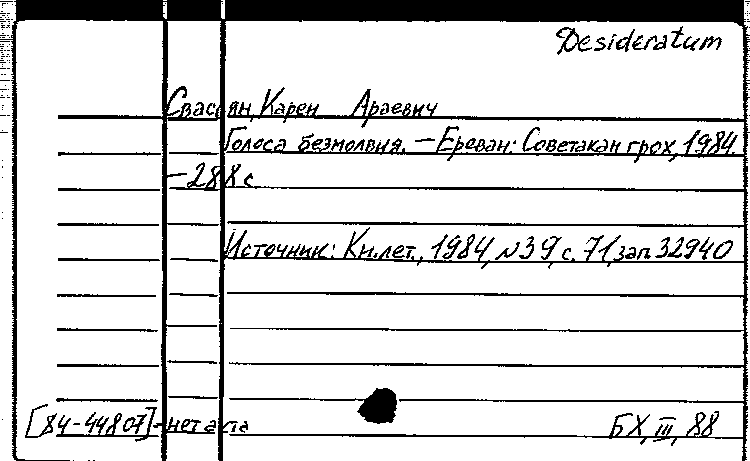 Desideratum
Свасьян, Карен Араевич
Голоса безмолвия. — Ереван: Советакан грох, 1984.
— 288 с
Источник: Кн.лет., 1984, №39, с. 71, зап. 32940
[84-44807] - нет акта
БХ, III, 88